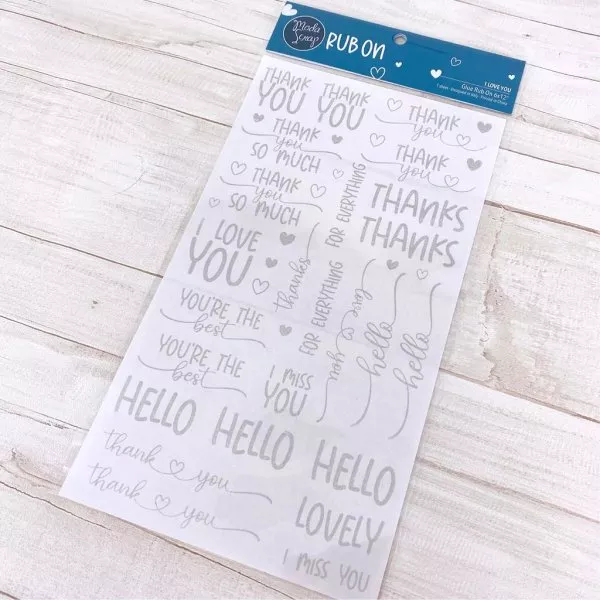 Moda
Scrap
RUB ON
I LOVE YOU
Glue Rub On 6x12"
1 sheet - Designed in Italy - Printed in China
THANK
YOU
THANK
YOU
THANK
you
THANK
you
SO MUCH
THANK
you
THANK
you
SO MUCH
FOR EVERYTHING
THANKS
THANKS
I LOVE
YOU
thanks
FOR EVERYTHING
love
you
hello
hello
YOU'RE THE
best
YOU'RE THE
best
I MISS
YOU
HELLO
HELLO
HELLO
thank you
thank you
LOVELY
I MISS YOU